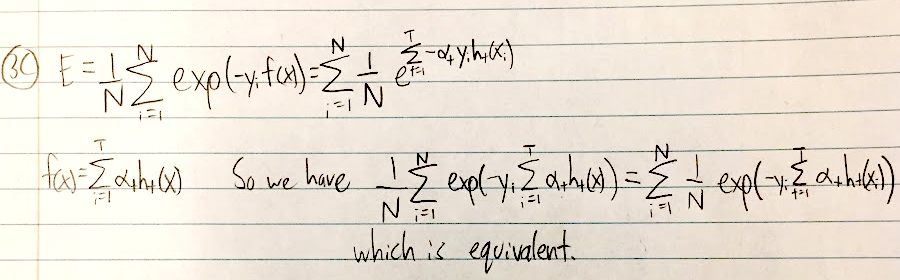 (3C) E = \frac{1}{N} \sum_{i=1}^{N} exp(-y_i f(x)) = \sum_{i=1}^{N} \frac{1}{N} e^{\sum_{t=1}^{T} -α_t y_i h_t(x_i)}
f(x) = \sum_{i=1}^{T} α_t h_t(x) So we have \frac{1}{N} \sum_{i=1}^{N} exp(-y_i \sum_{i=1}^{T} α_t h_t(x)) = \sum_{i=1}^{N} \frac{1}{N} exp(-y_i \sum_{t=1}^{T} α_t h_t(x_i))
which is equivalent.